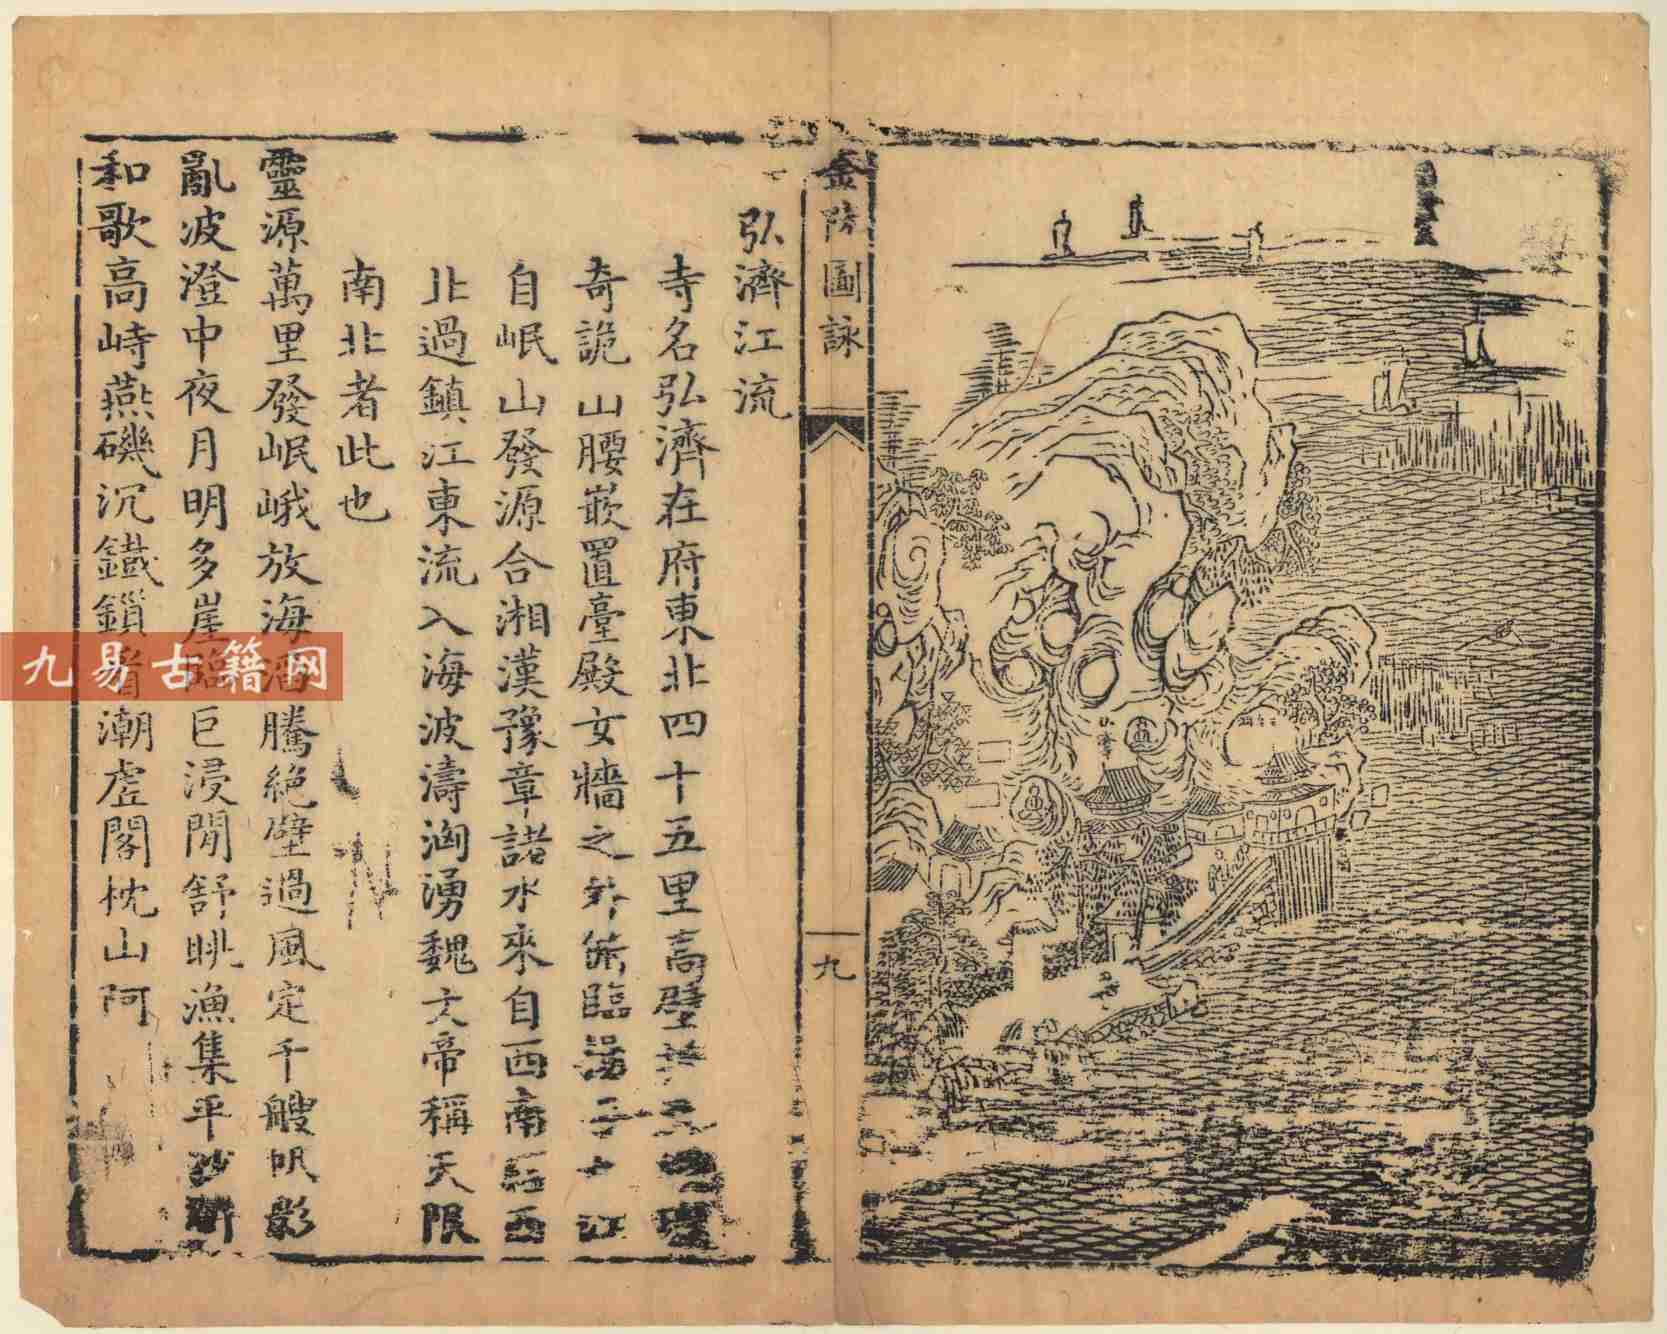 金陵圖詠
九
弘濟
弘濟江流
寺名弘濟在府東北四十五里高壁
奇詭山腰嵌置臺殿女牆之外俯臨揚子大江
自岷山發源合湘漢豫章諸水來自西南經西
北過鎮江東流入海波濤洶湧魏文帝稱天限
南北者此也
靈源萬里發岷峨放海潛騰絕壁過風定千艘帆影
亂波澄中夜月明多崖臨巨浸閒舒眺漁集平沙
和歌高峙燕磯沉鐵鎖看潮虛閣枕山阿
九易古籍网